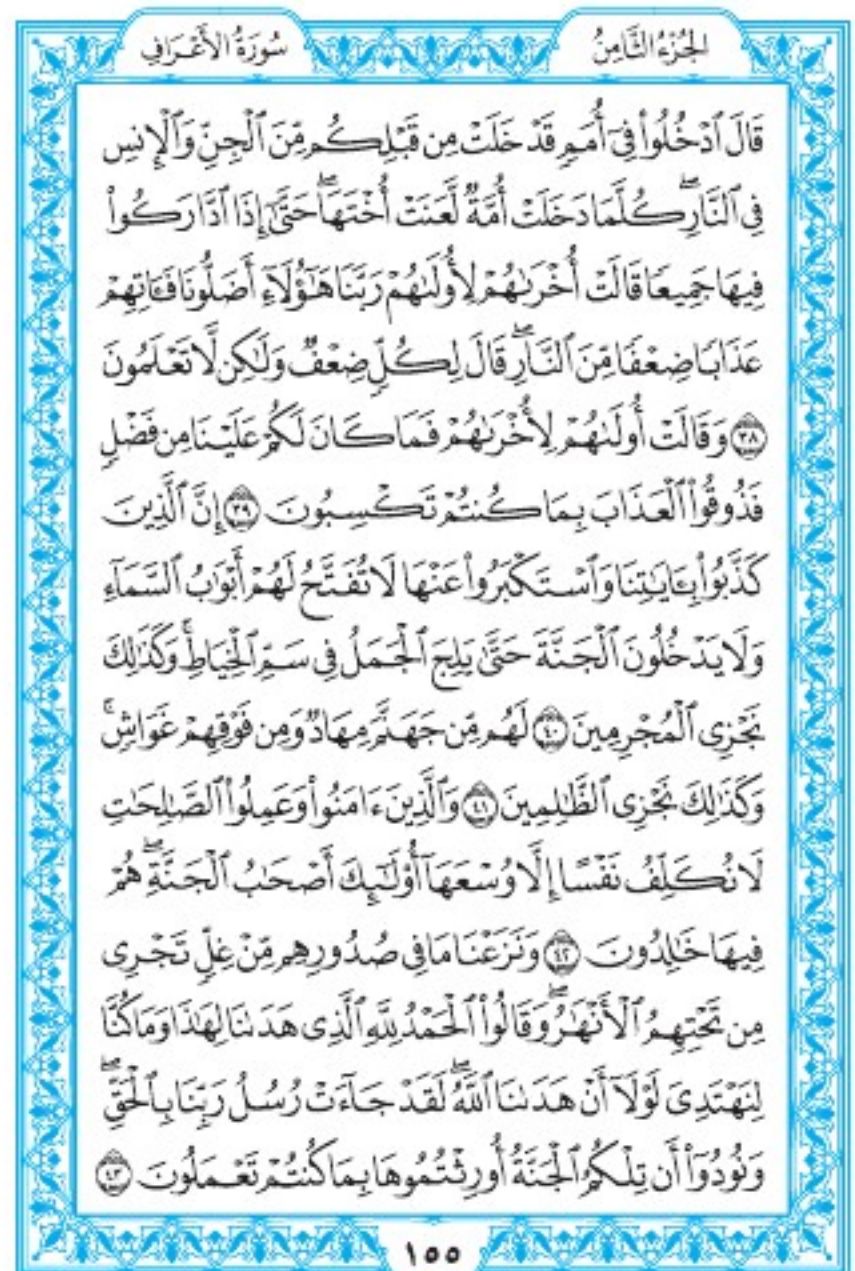 الجُزْءُ الثَّامِنُ
سُورَةُ الأَعْرَافِ
قَالَ ٱدْخُلُواْ فِىٓ أُمَمٍ قَدْ خَلَتْ مِن قَبْلِكُم مِّنَ ٱلْجِنِّ وَٱلْإِنسِ
فِى ٱلنَّارِۖ كُلَّمَا دَخَلَتْ أُمَّةٌ لَّعَنَتْ أُخْتَهَاۖ حَتَّىٰٓ إِذَا ٱدَّارَكُواْ
فِيهَا جَمِيعًا قَالَتْ أُخْرَىٰهُمْ لِأُولَىٰهُمْ رَبَّنَا هَٰٓؤُلَآءِ أَضَلُّونَا فَـَٔاتِهِمْ
عَذَابًا ضِعْفًا مِّنَ ٱلنَّارِۖ قَالَ لِكُلٍّ ضِعْفٌ وَلَٰكِن لَّا تَعْلَمُونَ
٣٨ وَقَالَتْ أُولَىٰهُمْ لِأُخْرَىٰهُمْ فَمَا كَانَ لَكُمْ عَلَيْنَا مِن فَضْلٍ
فَذُوقُواْ ٱلْعَذَابَ بِمَا كُنتُمْ تَكْسِبُونَ ٣٩ إِنَّ ٱلَّذِينَ
كَذَّبُواْ بِـَٔايَٰتِنَا وَٱسْتَكْبَرُواْ عَنْهَا لَا تُفَتَّحُ لَهُمْ أَبْوَٰبُ ٱلسَّمَآءِ
وَلَا يَدْخُلُونَ ٱلْجَنَّةَ حَتَّىٰ يَلِجَ ٱلْجَمَلُ فِى سَمِّ ٱلْخِيَاطِۚ وَكَذَٰلِكَ
نَجْزِى ٱلْمُجْرِمِينَ ٤٠ لَهُم مِّن جَهَنَّمَ مِهَادٌ وَمِن فَوْقِهِمْ غَوَاشٍۚ
وَكَذَٰلِكَ نَجْزِى ٱلظَّٰلِمِينَ ٤١ وَٱلَّذِينَ ءَامَنُواْ وَعَمِلُواْ ٱلصَّٰلِحَٰتِ
لَا نُكَلِّفُ نَفْسًا إِلَّا وُسْعَهَآ أُوْلَٰٓئِكَ أَصْحَٰبُ ٱلْجَنَّةِۖ هُمْ
فِيهَا خَٰلِدُونَ ٤٢ وَنَزَعْنَا مَا فِى صُدُورِهِم مِّنْ غِلٍّ تَجْرِى
مِن تَحْتِهِمُ ٱلْأَنْهَٰرُۖ وَقَالُواْ ٱلْحَمْدُ لِلَّهِ ٱلَّذِى هَدَىٰنَا لِهَٰذَا وَمَا كُنَّا
لِنَهْتَدِىَ لَوْلَآ أَنْ هَدَىٰنَا ٱللَّهُۖ لَقَدْ جَآءَتْ رُسُلُ رَبِّنَا بِٱلْحَقِّۖ
وَنُودُوٓاْ أَن تِلْكُمُ ٱلْجَنَّةُ أُورِثْتُمُوهَا بِمَا كُنتُمْ تَعْمَلُونَ ٤٣
١٥٥